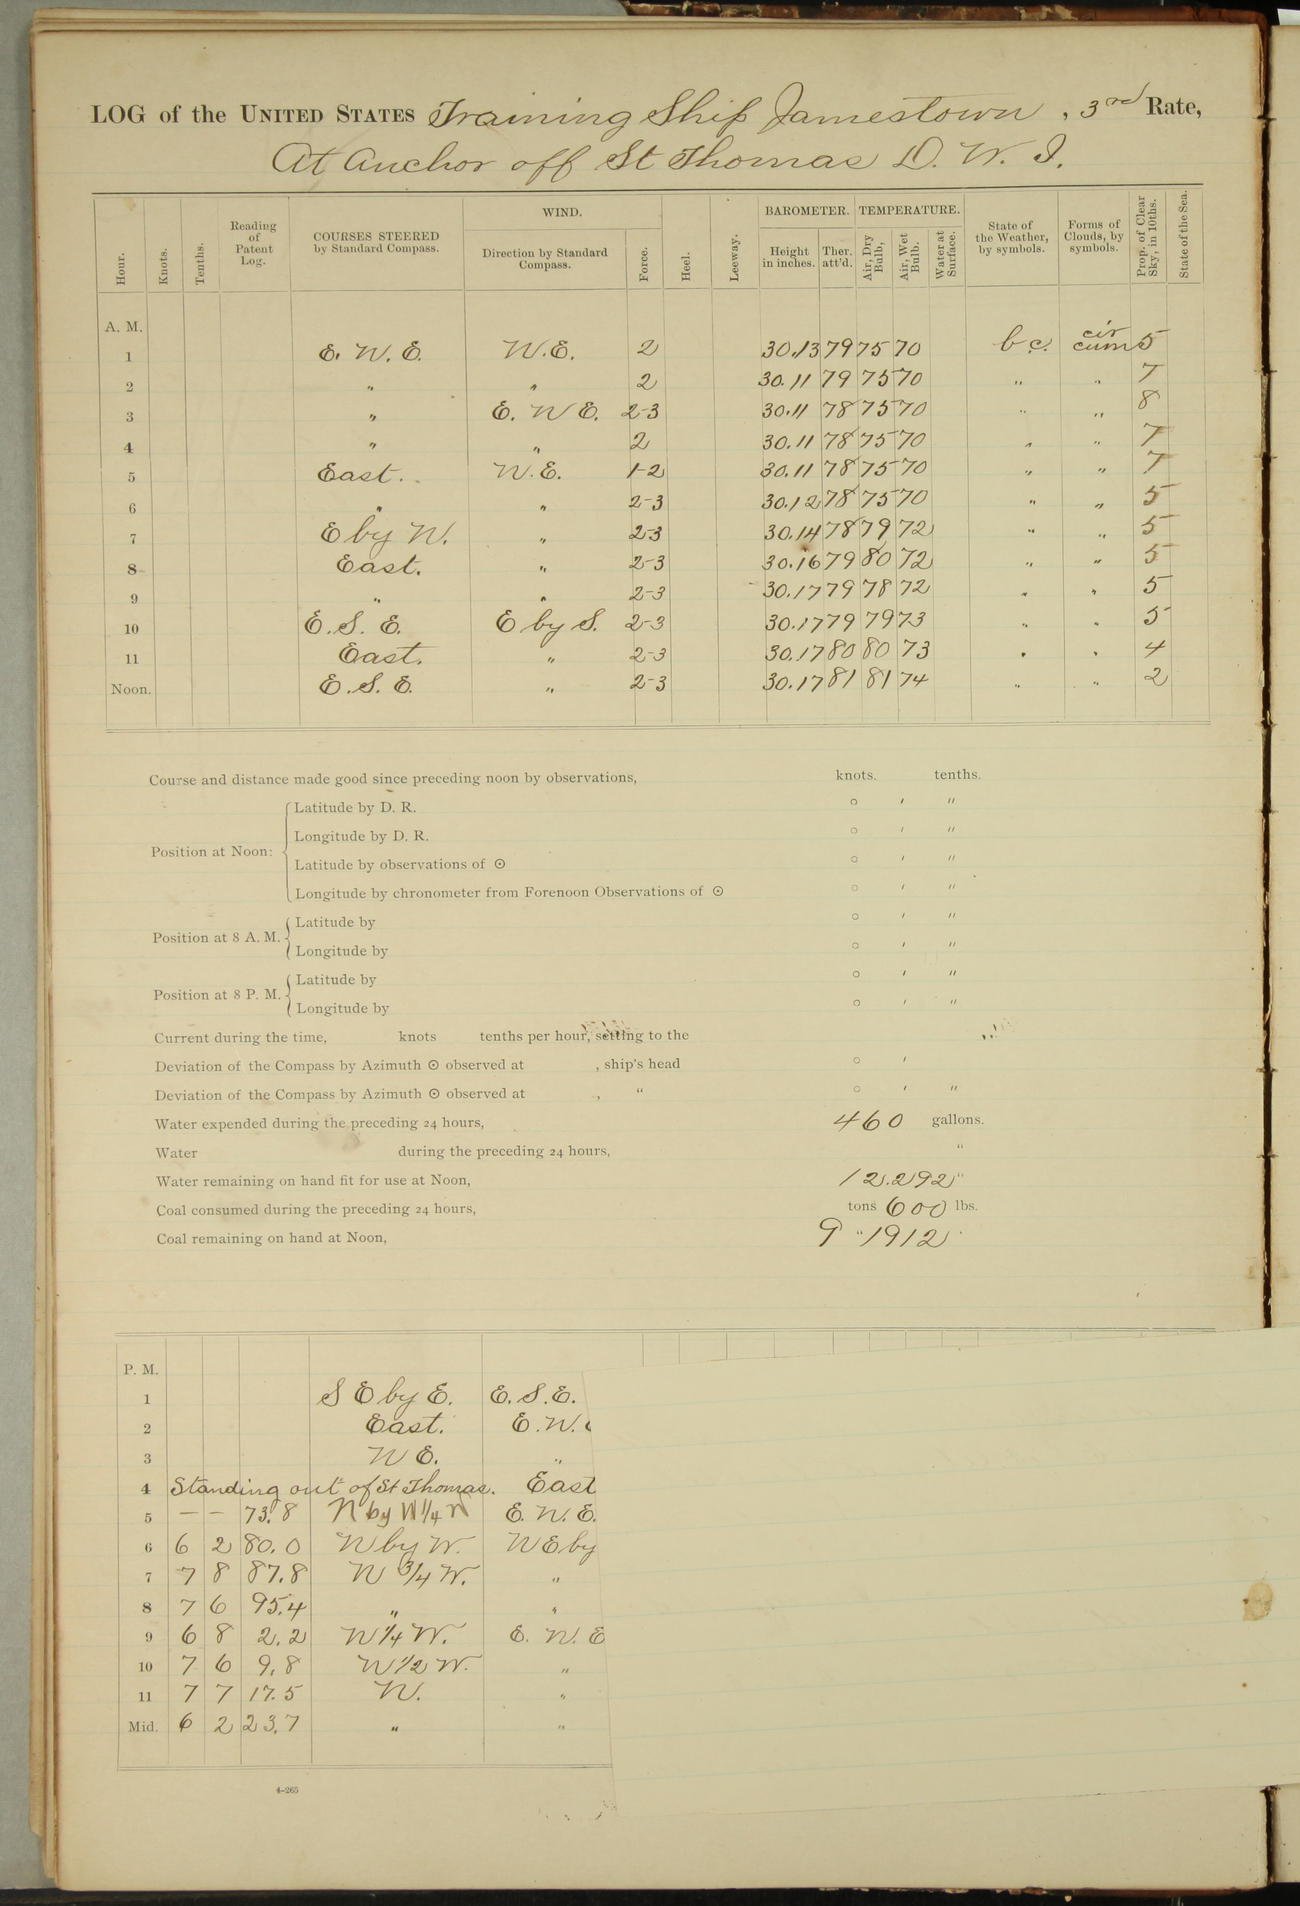 LOG of the UNITED STATES Training Ship Jamestown, 3rd Rate,
At Anchor off St Thomas D. W. I.
Hour. Knots. Tenths. Reading of Patent Log. COURSES STEERED by Standard Compass. WIND. Direction by Standard Compass. Force. Heel. Leeway. BAROMETER. Height in inches. Ther. att'd. TEMPERATURE. Air, Dry Bulb, Air, Wet Bulb. Water at Surface. State of the Weather, by symbols. Forms of Clouds, by symbols. Prop. of Clear Sky, in 10ths. State of the Sea.
A. M.
1 E. N. E. N.E. 2 30.13 79 75 70 b.c. cir cum 5
2 " " 2 30.11 79 75 70 " " 7
3 " E. N E. 2-3 30.11 78 75 70 " " 8
4 " " 2 30.11 78 75 70 " " 7
5 East. N.E. 1-2 30.11 78 75 70 " " 7
6 " " 2-3 30.12 78 75 70 " " 5
7 E by N. " 2-3 30.14 78 79 72 " " 5
8 East. " 2-3 30.16 79 80 72 " " 5
9 " " 2-3 30.17 79 78 72 " " 5
10 E. S. E. E by S. 2-3 30.17 79 79 73 " " 5
11 East. " 2-3 30.17 80 80 73 " " 4
Noon. E. S. E. " 2-3 30.17 81 81 74 " " 2
Course and distance made good since preceding noon by observations, knots. tenths.
Position at Noon:
Latitude by D. R. ° ′ ″
Longitude by D. R. ° ′ ″
Latitude by observations of ⊙ ° ′ ″
Longitude by chronometer from Forenoon Observations of ⊙ ° ′ ″
Position at 8 A. M.
Latitude by ° ′ ″
Longitude by ° ′ ″
Position at 8 P. M.
Latitude by ° ′ ″
Longitude by ° ′ ″
Current during the time, knots tenths per hour, setting to the
Deviation of the Compass by Azimuth ⊙ observed at , ship's head ° ′
Deviation of the Compass by Azimuth ⊙ observed at , " ° ′ ″
Water expended during the preceding 24 hours, 460 gallons.
Water during the preceding 24 hours, "
Water remaining on hand fit for use at Noon, 12.292 "
Coal consumed during the preceding 24 hours, tons 600 lbs.
Coal remaining on hand at Noon, 9 " 1912
P. M.
1 S E by E. E. S. E.
2 East. E. N.
3 N E. "
4 Standing out of St Thomas. East
5 — — 73.8 N by W 1/4 N E. N. E.
6 6 2 80.0 N by W. N E by
7 7 8 87.8 N 3/4 W. "
8 7 6 95.4 " "
9 6 8 2.2 N 1/4 W. E. N. E
10 7 6 9.8 N 1/2 W. "
11 7 7 17.5 N. "
Mid. 6 2 23.7 " "
4-265